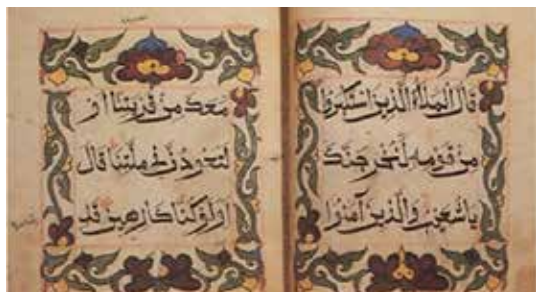 قال الملأ الذين استكبروا
من قومه لنخرجنك
يا شعيب والذين آمنوا
معك من قريتنا او
لتعودن في ملتنا قال
اولو كنا كارهين قد